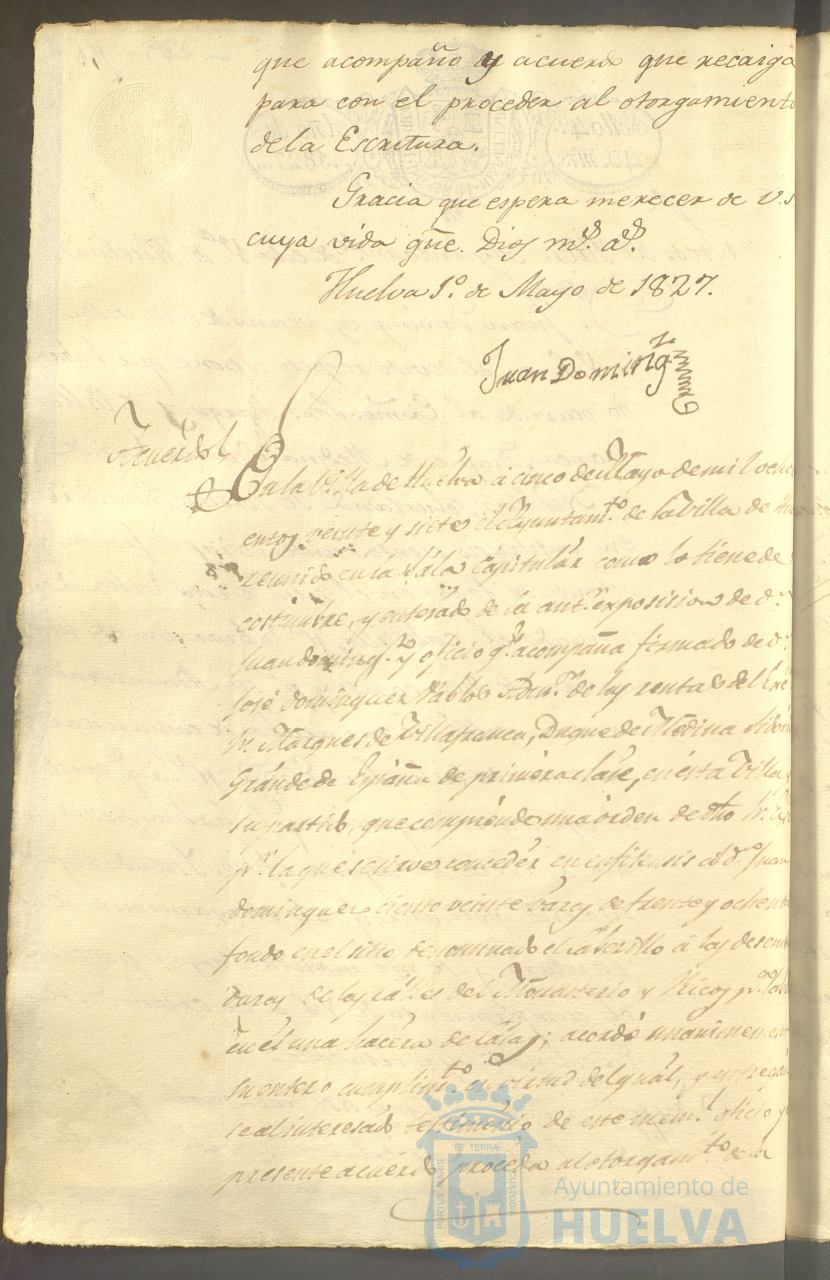 que acompaño y acuerdo que recaiga
para con el proceder al otorgamiento
de la Escritura.
Gracia que espera merecer de V.S
cuya vida gūe. Dios m.s a.s
Huelva 1.º de Mayo de 1827.
Juan Doming.z
Acuerdo
En la Villa de Huelva á cinco de Mayo de mil ochoci
entos veinte y siete el Ayuntam.to de la Villa de
reunido en la Sala Capitular como lo tiene de
costumbre, y enterado de la ant.r exposicion de d.n
Juan doming.z y oficio q.e acompaña firmado de d.n
José dominguez Pablos Adm.r de las rentas del
Sr. Marques de Villafranca, Duque de Medina Sidonia
Grande de España de primera clase, en esta Villa y
su partido, que comprende una orden de dho Sr.
p.r la que se sirve conceder en enfiteusis á d.n Juan
dominguez ciento veinte varas de frente y ochenta
fondo en el sitio denominado el á los de
de las calles del Monasterio y Ricos p.a
en el una hacera de Casas; acordó unanimement
su entero cumplim.to en virtud del qual, y entregan
se al interesado testimonio de este mem.l oficio y
presente acuerdo proceda al otorgam.to de la
ET TERRÆ
PORTUS MARIS
CUSTODIA
Ayuntamiento de
HUELVA